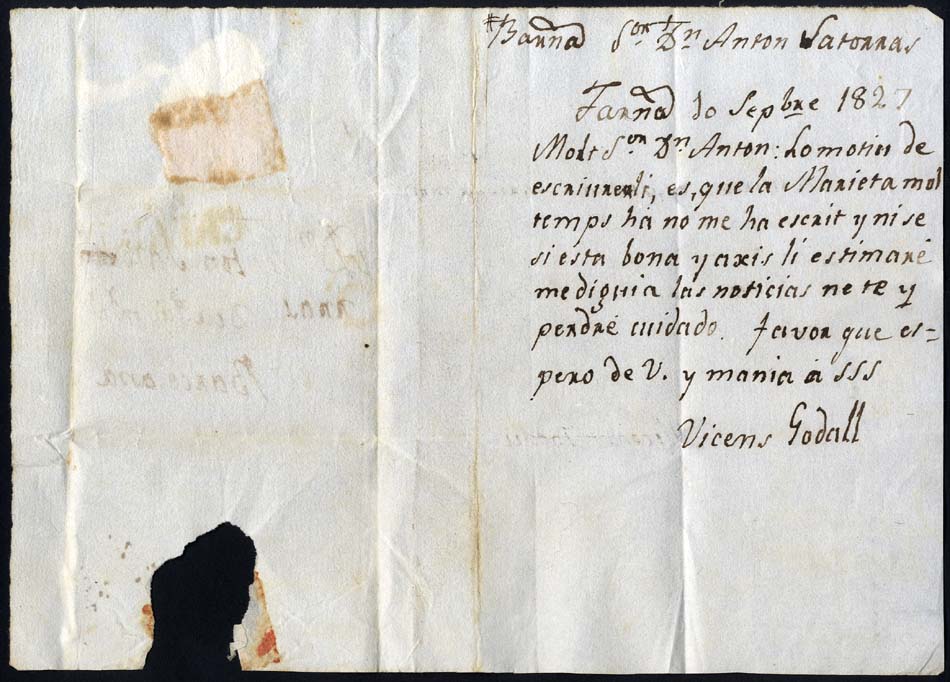 Barna Sor Dn Anton Satorras
Tarna 10 Sepbre 1827
Molt Sor Dn Anton: Lo motiu de
escriureli, es, que la Marieta mol
temps ha no me ha escrit y ni se
si esta bona y axis li estimaré
me diguia las noticias ne te y
perdré cuidado. Favor que es=
pero de V. y mania á SSS
Vicens Godall
Barcelona